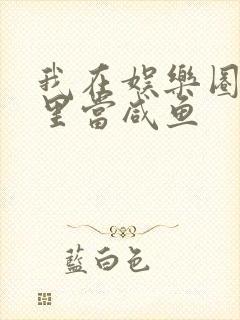 我在娱樂圈
里當咸鱼
藍白色